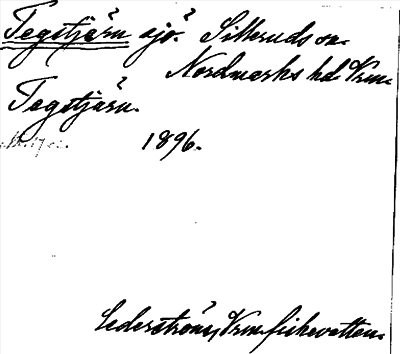 Tegstjärn sjö? Silleruds sn.
Nordmarks hd Vrm.
Tegstjärn.
1896.
Cederström, Vrm. fiskevatten.